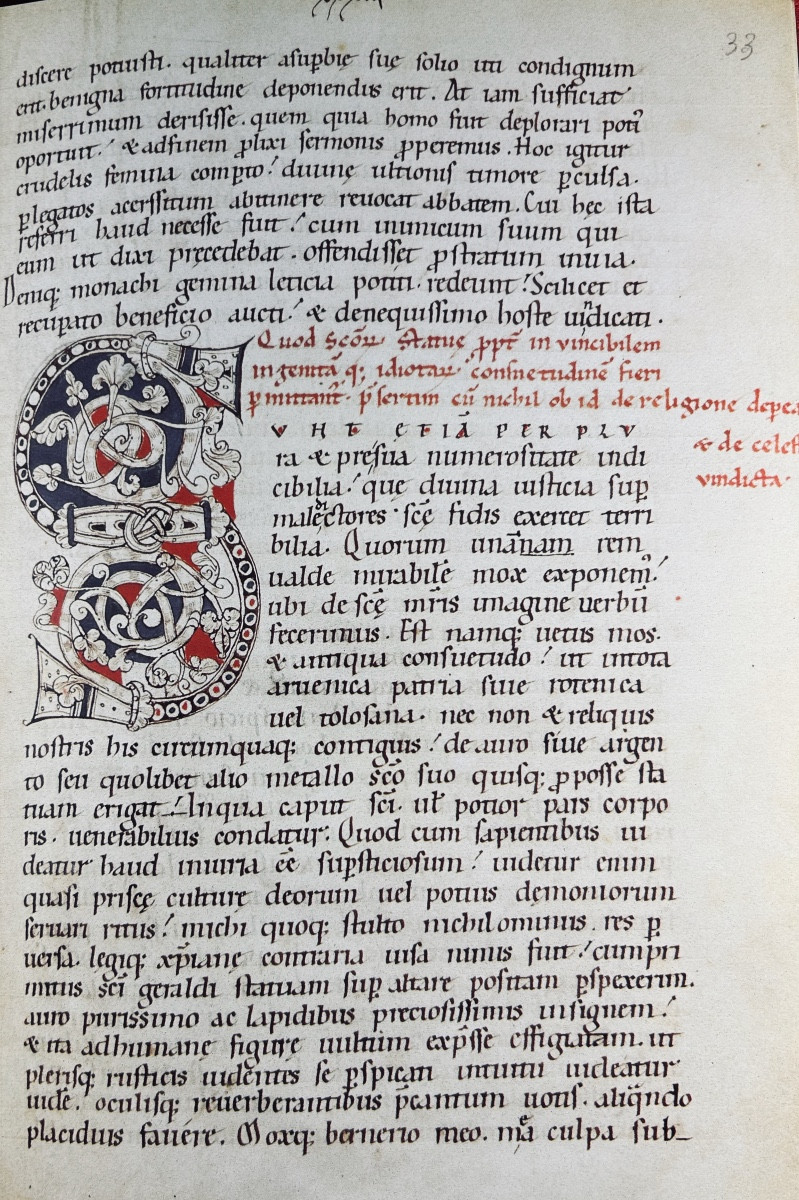 33
discere potuisti. qualiter asupbię suę solio uti condignum
erit. benigna fortitudine deponendus erit. At iam sufficiat
miserrimum derisisse. quem quia homo fuit deplorari poti
oportuit. & adfinem plixi sermonis pperemus. Hoc igitur
crudelis femina compto. diuinę ultionis timore pculsa.
plegatos acerssitum abitinere reuocat abbatem. Cui hęc ista
referri haud necesse fuit. cum inimicum suum qui
eum ut dixi pręcedebat. offendisset pstratum inuia.
Deniq; monachi gemina leticia potiti. redeunt. Scilicet et
recupato beneficio aucti. & denequissimo hoste uindicati.
Quod scōꝝ statuę ppt inuincibilem
ingenitā q; idiotaꝝ consuetudinē fieri
pmittant. psertim cū nichil ob id de religione depe
& de celes
uindicta.
UNT ETIĀ PER PLU
ra & pene sua numerositate indi
cibilia. que diuina iusticia sup
malefictores scę fidis exercet terri
bilia. Quorum unānam rem
ualde mirabile mox exponem.
ubi de scę mris imagine uerbū
fecerimus. Est namq; uetus mos.
& antiqua consuetudo. ut intota
aruenica patria siue rotenica
uel tolosana. nec non & reliquis
nostris his circumquaq; contiguis. de auro siue argen
to seu quolibet alio metallo scō suo quisq; pposse sta
tuam erigat. Inqua caput sci. ul potior pars corpo
ris. uenerabilius condatur. Quod cum sapientibus ui
deatur haud iniuria ēē supsticiosum. uidetur enim
quasi priscę culturę deorum uel potius dęmoniorum
seruari ritus. michi quoq; stulto nichilominus. res p
uersa. legiq; xpianę contraria uisa nimis fuit. cum pri
mitus sci geraldi statuam sup altare positam pspexerim.
auro purissimo ac lapidibus preciosissimis insignem.
& ita adhumanę figurę uultum expsse effigiatam. ut
plerisq; rusticis uidentes se pspicati intuitu uideatur
uide. oculisq; reuerberantibus pcantum uotis. aliqndo
placidius fauere. Moxq; bernerio meo. mea culpa sub